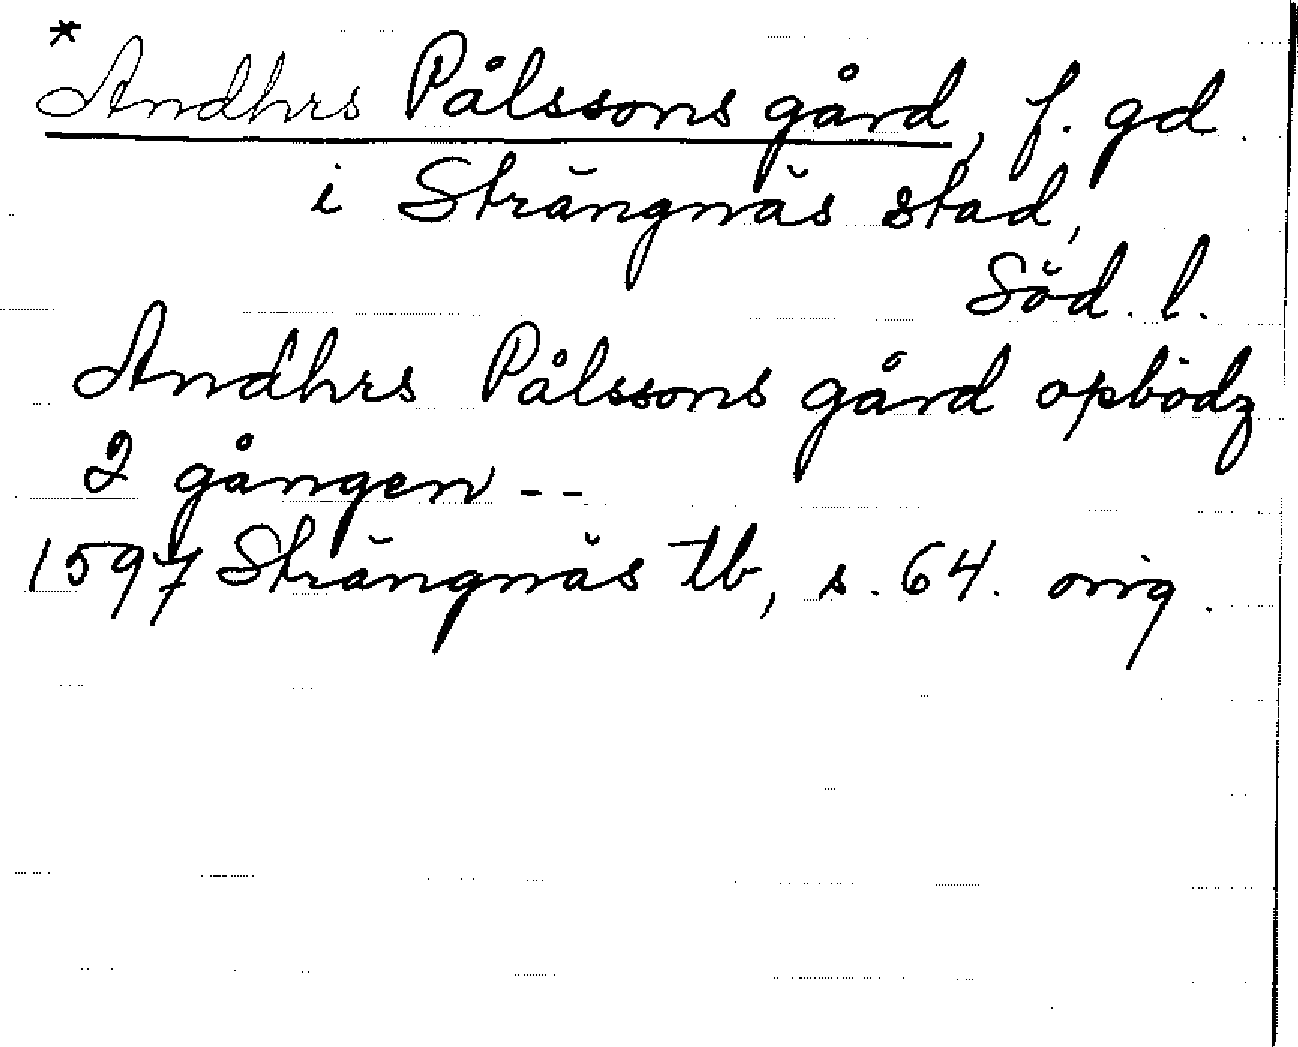 *Andhrs Pålssons gård, f. gd.
i Strängnäs stad,
Söd. l.
Andhrs Pålssons gård opbödz
2 gången --
1597 Strängnäs tb, s. 64. orig.